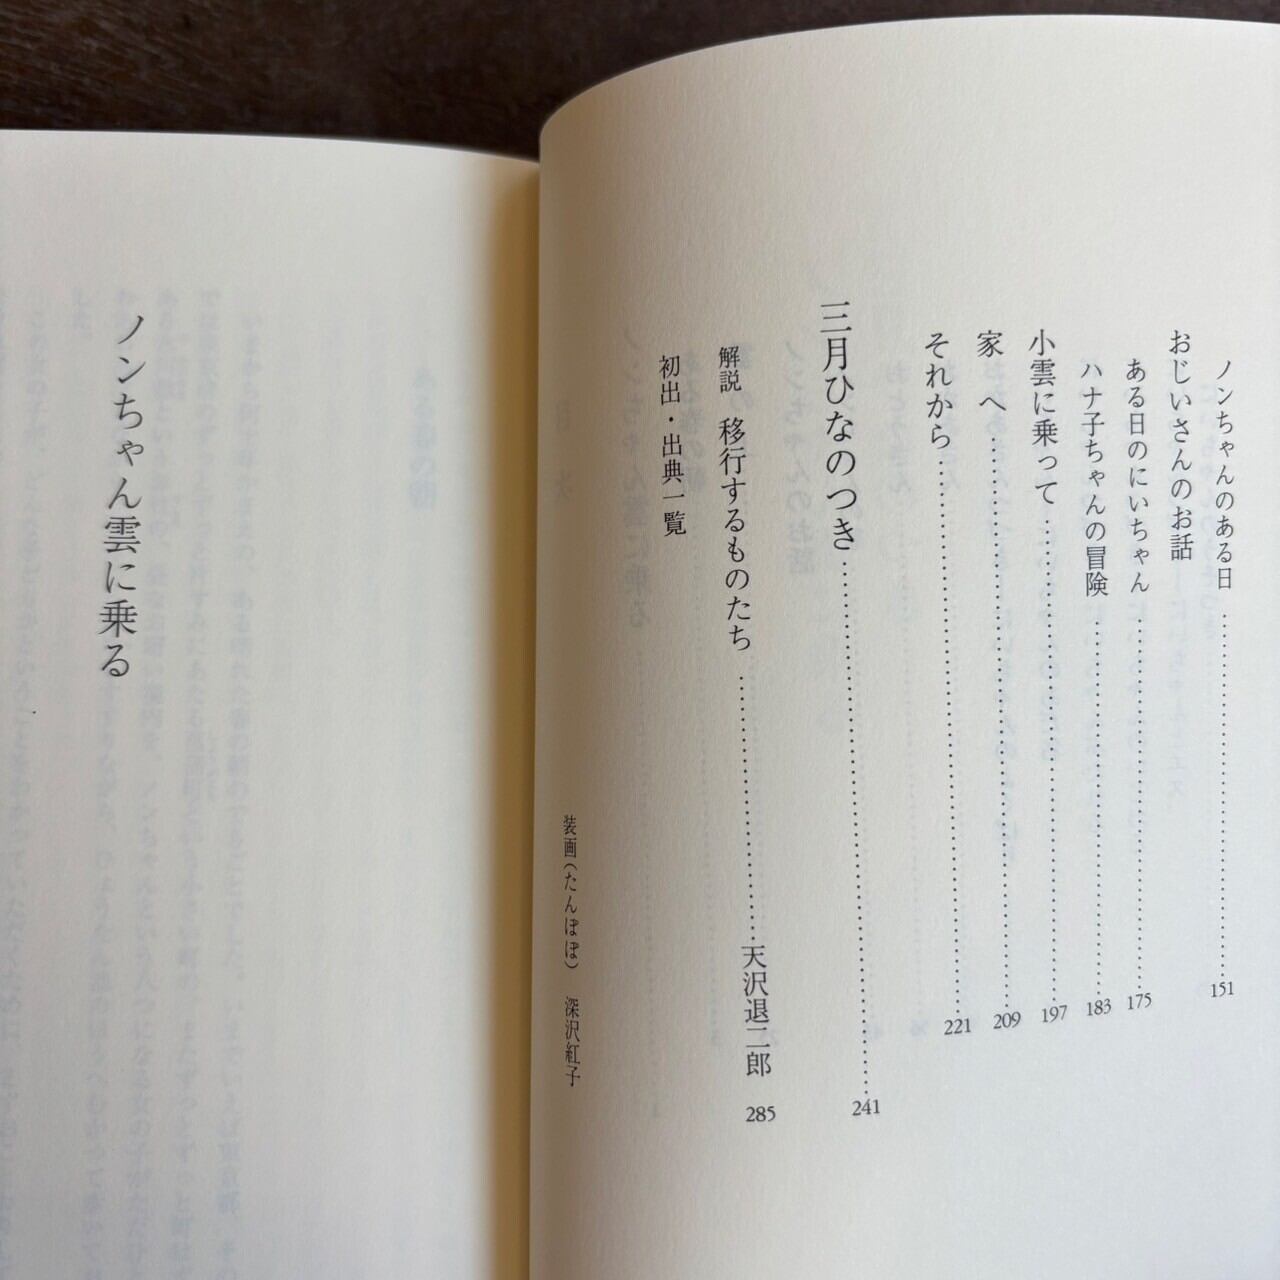 ノンちゃんのある日……151
おじいさんのお話
ある日のにいちゃん……175
ハナ子ちゃんの冒険……183
小雲に乗って……197
家へ……209
それから……221
三月ひなのつき……241
解説 移行するものたち……天沢退二郎 285
初出・出典一覧
装画(たんぽぽ) 深沢紅子
ノンちゃん雲に乗る